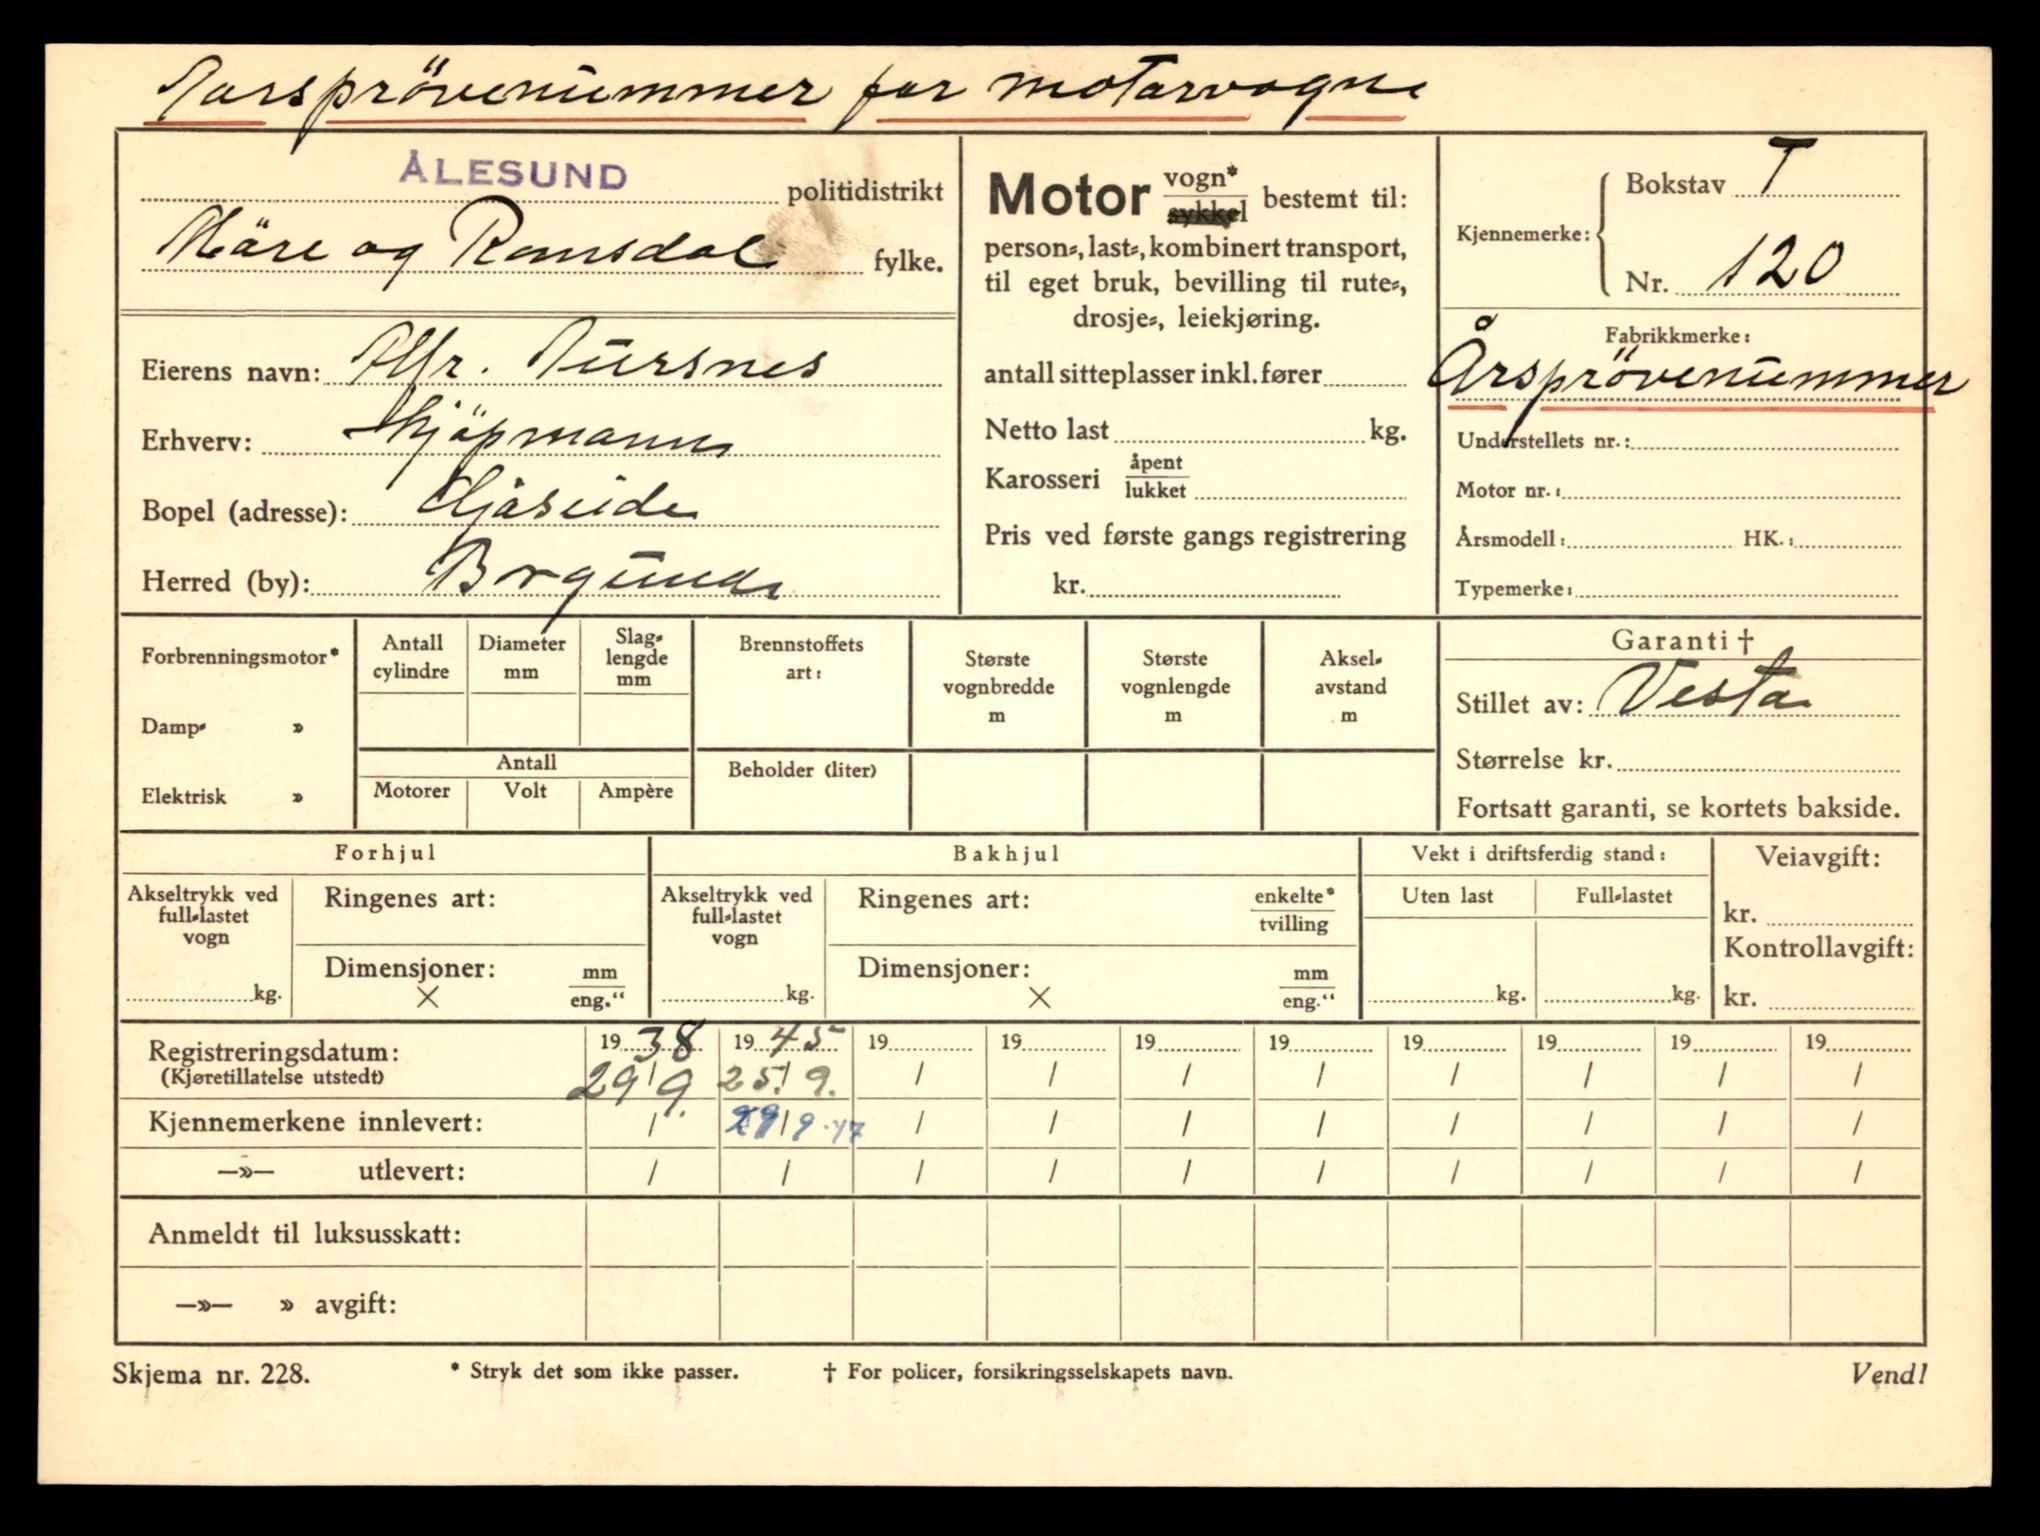 Aarsprövenummer for motorvogne
ÅLESUND politidistrikt
Möre og Romsdal fylke.
Eierens navn: Alfr. Tursnes
Erhverv: Kjöpmann
Bopel (adresse): Spjåseide
Herred (by): Borgund
Motor vogn* sykkel bestemt til:
person-, last-, kombinert transport,
til eget bruk, bevilling til rute-,
drosje-, leiekjøring.
antall sitteplasser inkl. fører
Netto last kg.
Karosseri åpent lukket
Pris ved første gangs registrering
kr.
Kjennemerke: Bokstav T
Nr. 120
Fabrikkmerke:
Årsprövenummer
Understellets nr.:
Motor nr.:
Årsmodell: HK.:
Typemerke:
Forbrenningsmotor*
Damp- »
Elektrisk »
Antall cylindre
Diameter mm
Slag-lengde mm
Antall
Motorer Volt Ampère
Brennstoffets art:
Beholder (liter)
Største vognbredde m
Største vognlengde m
Aksel-avstand m
Garanti †
Stillet av: Vesta
Størrelse kr.
Fortsatt garanti, se kortets bakside.
Forhjul
Akseltrykk ved full-lastet vogn
kg.
Ringenes art:
Dimensjoner: mm eng."
×
Bakhjul
Akseltrykk ved full-lastet vogn
kg.
Ringenes art: enkelte* tvilling
Dimensjoner: mm eng."
×
Vekt i driftsferdig stand:
Uten last Full-lastet
kg. kg.
Veiavgift:
kr.
Kontrollavgift:
kr.
Registreringsdatum: 1938 1945 19 19 19 19 19 19 19 19
(Kjøretillatelse utstedt) 29/9. 25/9. / / / / / / / /
Kjennemerkene innlevert: / 29/9.47 / / / / / / / /
—»— utlevert: / / / / / / / / / /
Anmeldt til luksusskatt:
—»— » avgift:
Skjema nr. 228. * Stryk det som ikke passer. † For policer, forsikringsselskapets navn. Vend!